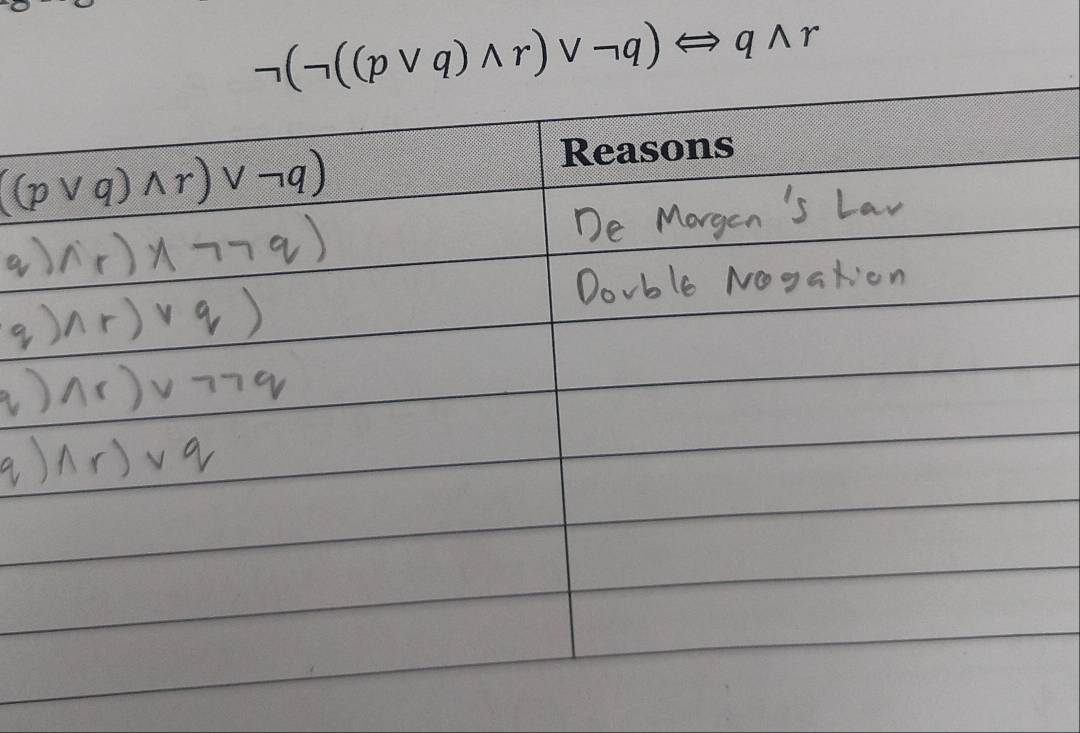 ¬(¬((p ∨ q) ∧ r) ∨ ¬q) ⇔ q ∧ r
((p ∨ q) ∧ r) ∨ ¬q)
Reasons
q) ∧ r) ∧ ¬¬q)
De Morgan's Law
q) ∧ r) ∨ q)
Double Negation
q) ∧ r) ∨ ¬¬q
q) ∧ r) ∨ q